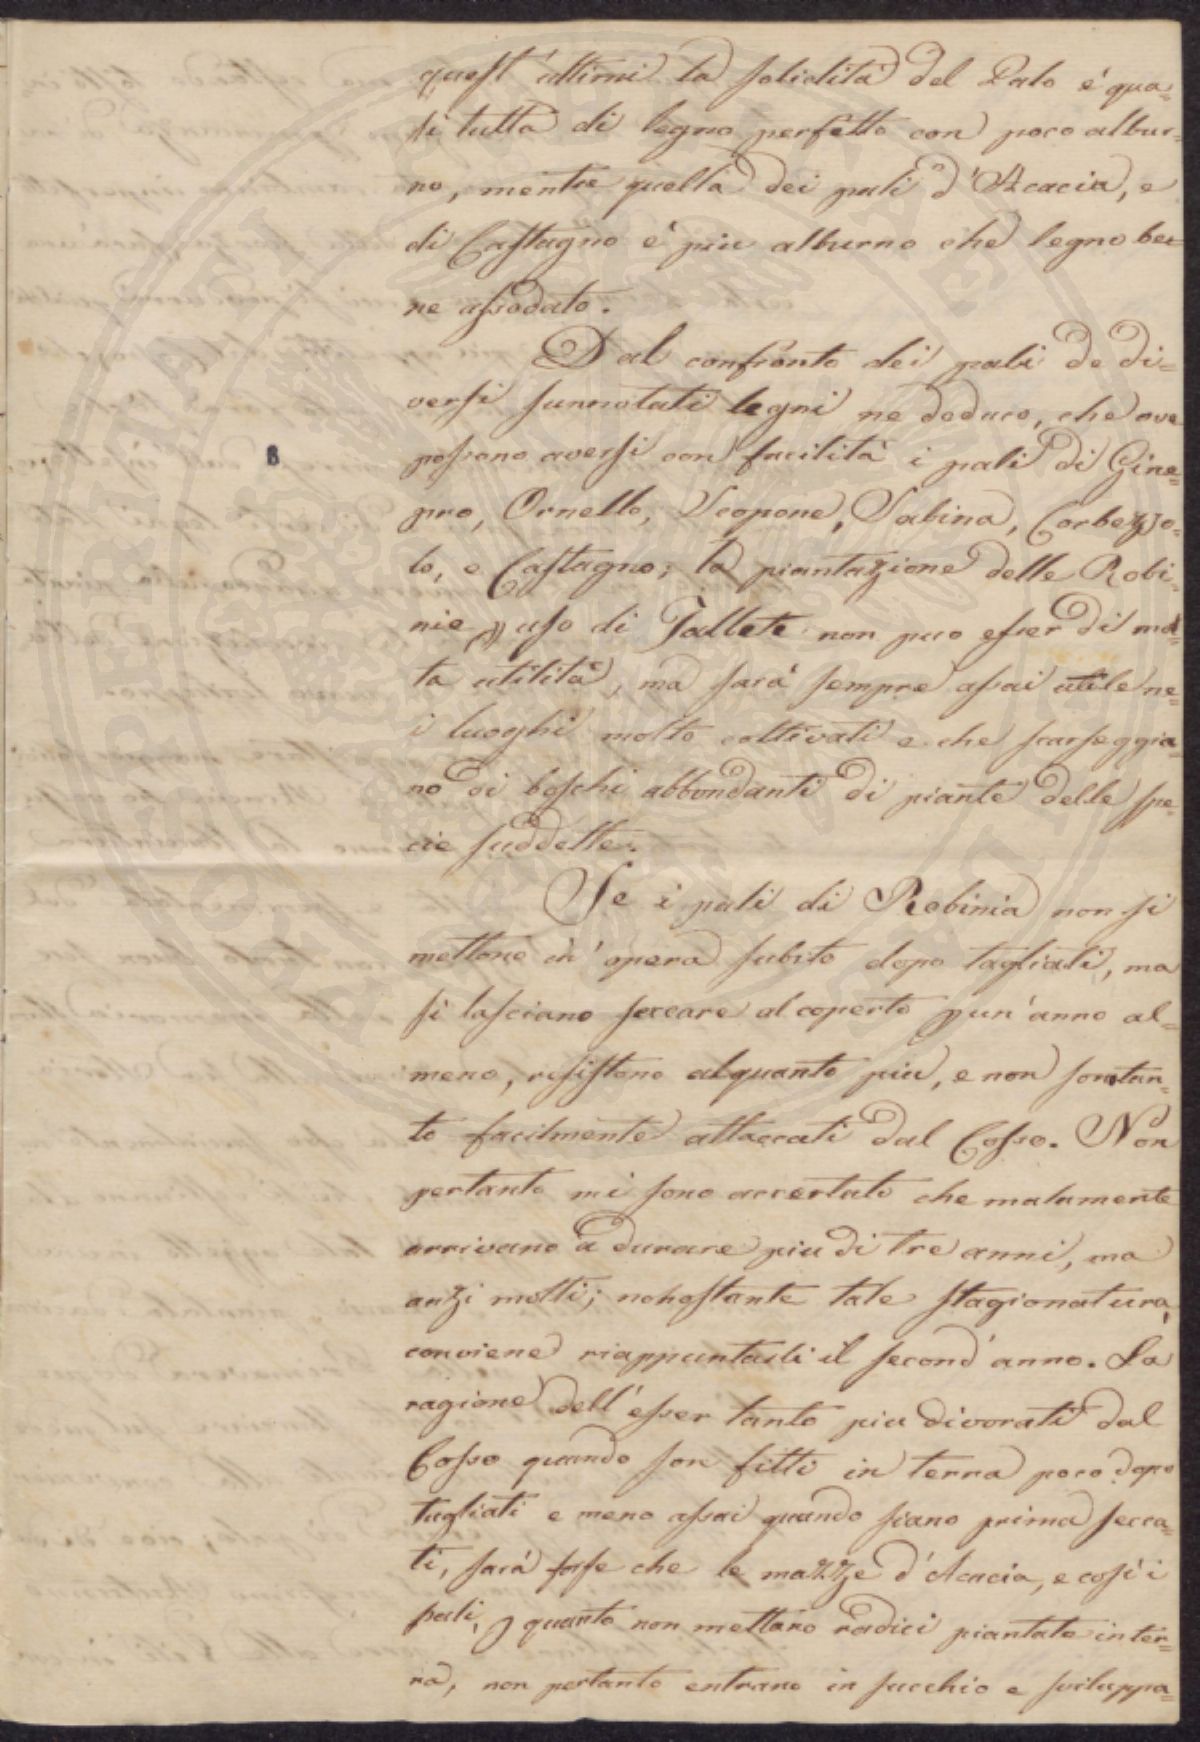 quest'ultimi la solidità del Palo è qua=
si tutta di legno perfetto con poco albur=
no, mentre quella dei pali d'Acacia, e
di Castagno è piu alburno che legno be=
ne assodato.
Dal confronto dei pali de di=
versi sunnotati legni ne deduco, che ove
possono aversi con facilità i pali di Gine=
pro, Ornello, Scopone, Sabina, Corbezzo=
lo, e Castagno; la piantazione delle Robi=
nie p uso di Pallete non puo esser di mol=
ta utilità, ma sarà sempre assai utile ne=
i luoghi molto coltivati e che scarseggia
no di boschi abbondanti di piante delle spe=
cie suddette.
Se i pali di Robinia non si
mettono in opera subito dopo tagliati, ma
si lasciano seccare al coperto p un'anno al=
meno, resistono alquanto piu, e non son tan=
to facilmente attaccati dal Cosso. Non
pertanto mi sono accertato che malamente
arrivano a durare piu di tre anni, ma
anzi molti; nonostante tale stagionatura,
conviene riappuntarli il second'anno. La
ragione dell'esser tanto piu divorati dal
Cosso quando son fitti in terra poco dopo
tagliati e meno assai quando siano prima secca=
ti, sarà forse che le mazze d'Acacia, e così i
pali, p quanto non mettano radici piantate in ter=
ra, non pertanto entrano in succhio e sviluppa=